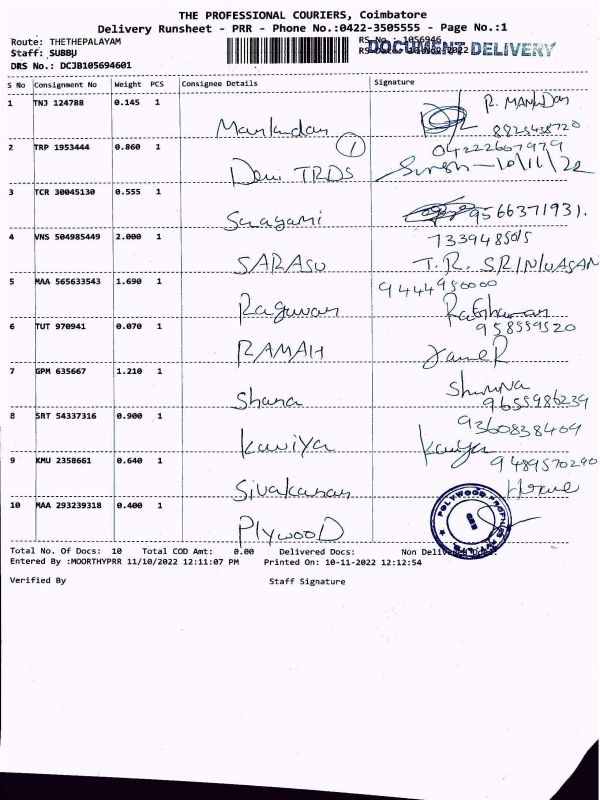 THE PROFESSIONAL COURIERS, Coimbatore
Delivery Runsheet - PRR - Phone No.:0422-3505555 - Page No.:1
Route: THETHEPALAYAM
RS No.: 1056946
Staff: SUBBU
DOCUMENT DELIVERY
DRS No.: DCJB105694601
S No Consignment No Weight PCS Consignee Details Signature
1 TNJ 124788 0.145 1 R. MANI
2 TRP 1953444 0.860 1 1 04222667979
Devi TRDS Suresh - 10/11/22
3 TCR 30045130 0.555 1 9566371931.
4 VNS 504985449 2.000 1
SARASU T.R. SRINIVASAN
5 MAA 565633543 1.690 1 9444950000
Raguvan Raghavan
6 TUT 970941 0.070 1 958559520
RAMAH
7 GPM 635667 1.210 1
Shana 9655986239
8 SRT 54337316 0.900 1 9360838409
Kaviya Kaviya
9 KMU 2358661 0.640 1 9489570290
10 MAA 293239318 0.400 1
Plywood
Total No. Of Docs: 10 Total COD Amt: 0.00 Delivered Docs: Non
Entered By :MOORTHYPRR 11/10/2022 12:11:07 PM Printed On: 10-11-2022 12:12:54
Verified By Staff Signature